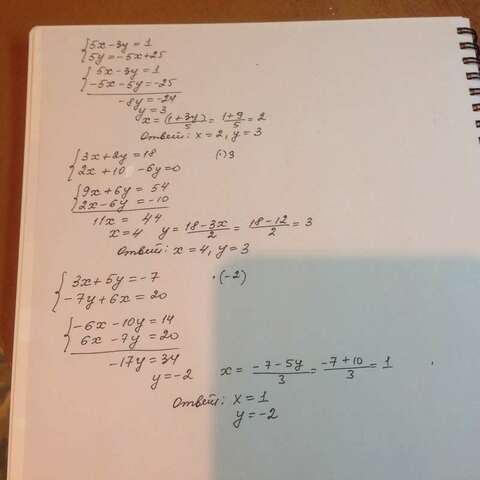 {5x-3y=1
{5y=-5x+25
{5x-3y=1
{-5x-5y=-25
-8y=-24
y=3
x=(1+3y)/5=(1+9)/5=2
Ответ: x=2, y=3
{3x+2y=18 (·)3
{2x+10-6y=0
{9x+6y=54
{2x-6y=-10
11x=44
x=4 y=(18-3x)/2=(18-12)/2=3
Ответ: x=4, y=3
{3x+5y=-7 ·(-2)
{-7y+6x=20
{-6x-10y=14
{6x-7y=20
-17y=34
y=-2 x=(-7-5y)/3=(-7+10)/3=1
Ответ: x=1
y=-2